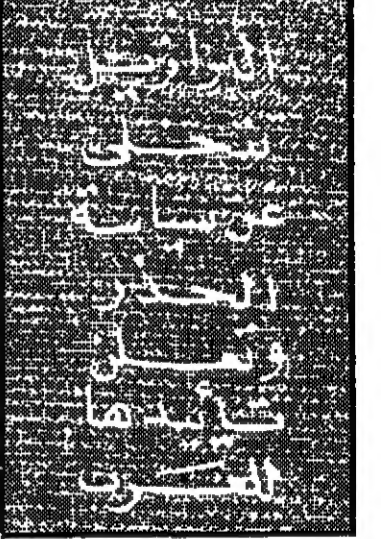 البرازيل
تتخلى
عن سياسة
الحذر
وتعلن
تأييدها
للعرب